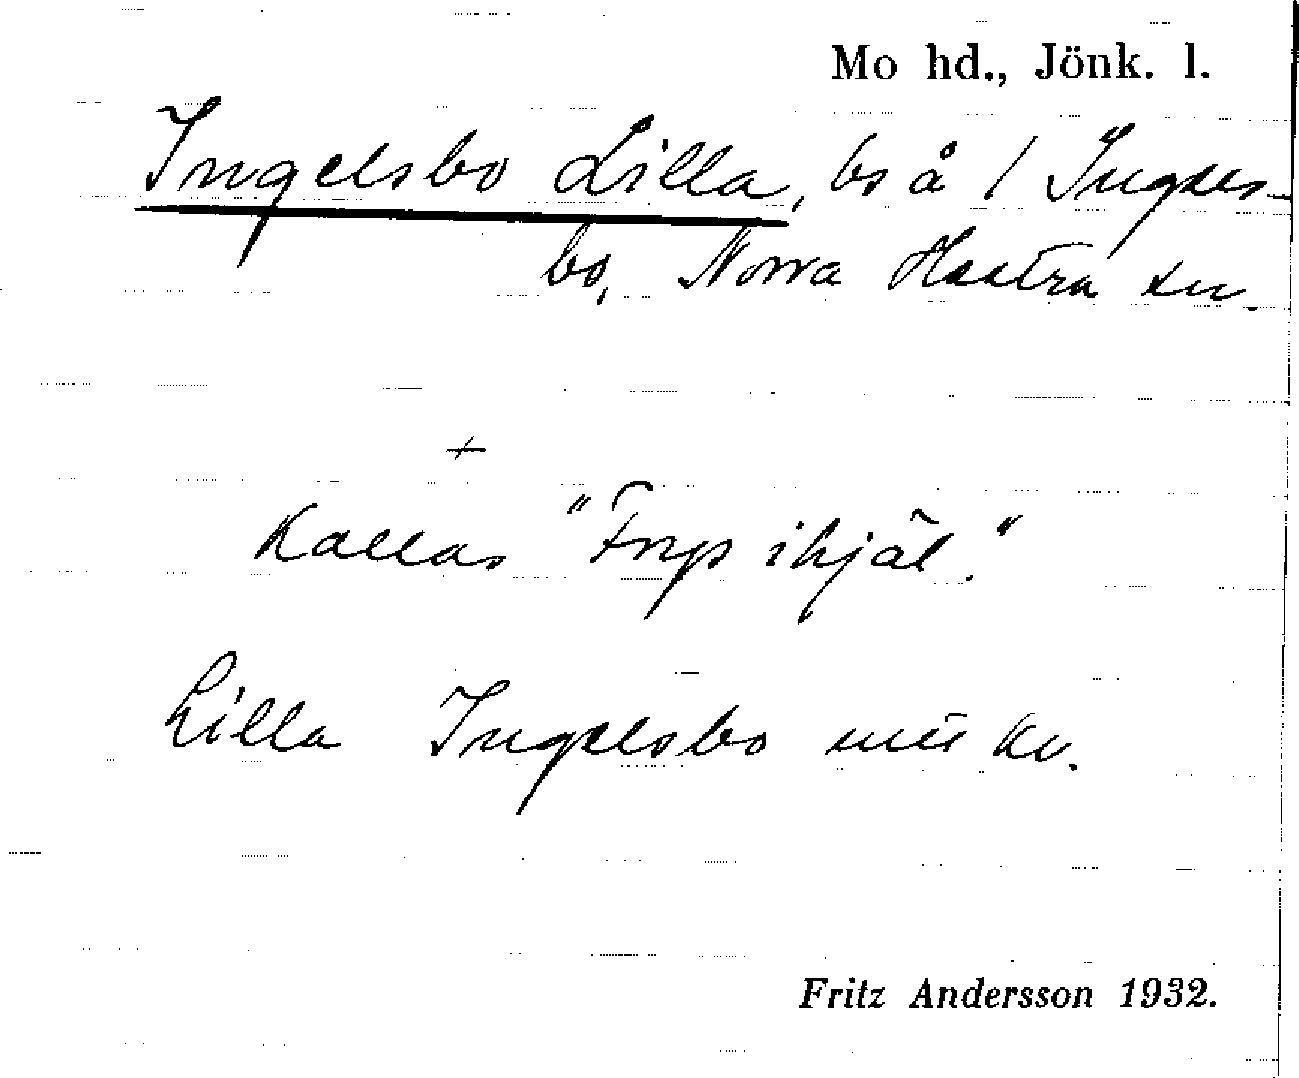 Mo hd., Jönk. l.
Ingelsbo Lilla, bs å 1 Ingels-
bo, Norra Hestra sn.
+
Kallas "Frys ihjäl."
Lilla Ingelsbo kv.
Fritz Andersson 1932.